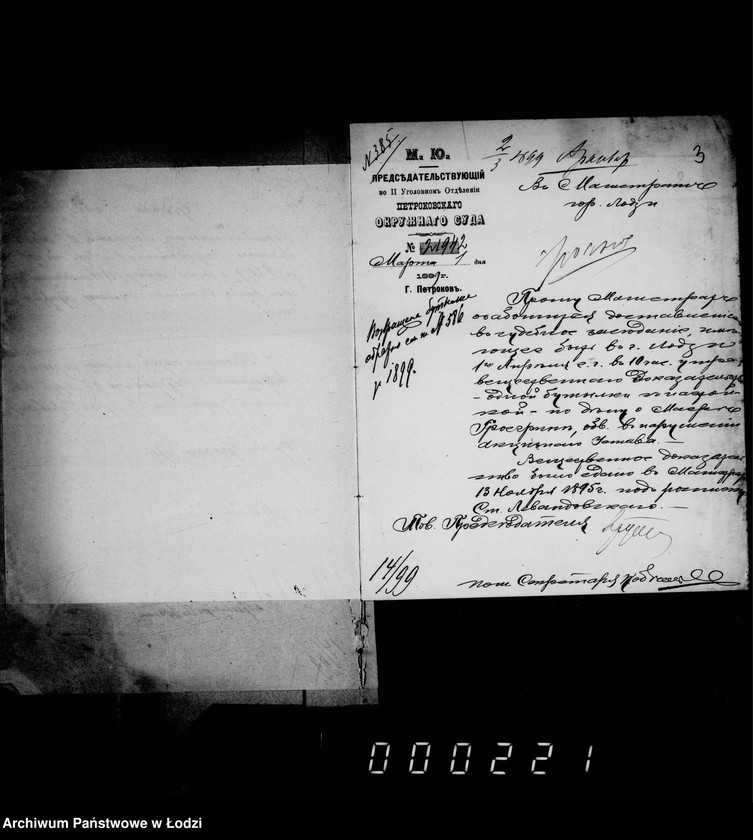 N 385
М. Ю.
ПРЕДСѢДАТЕЛЬСТВУЮЩІЙ
во II Уголовномъ Отдѣленіи
ПЕТРОКОВСКАГО
ОКРУЖНАГО СУДА
№ 21942
Марта 1 дня
1899 г.
Г. Петроковъ.
Возвращена бутылка
№ 586
1899.
2/3 1899
3
Въ Магистратъ
гор. Лодзи
Прошу Магистратъ
озаботиться доставленіемъ
въ судебное засѣданіе, имѣ-
ющее быть въ г. Лодзи
1го Апрѣля с. г. въ 10 час. утра
вещественнаго доказательства
- одной бутылки
- по дѣлу о
обв. въ нарушеніи
акцизнаго Устава. —
Вещественное доказатель-
ство было сдано въ Магистратъ
13 Ноября 1895 г. подъ росписку
Ст. Левандовскаго. —
Тов. Предсѣдателя
14/99
пом. Секретаря
000221
Archiwum Państwowe w Łodzi